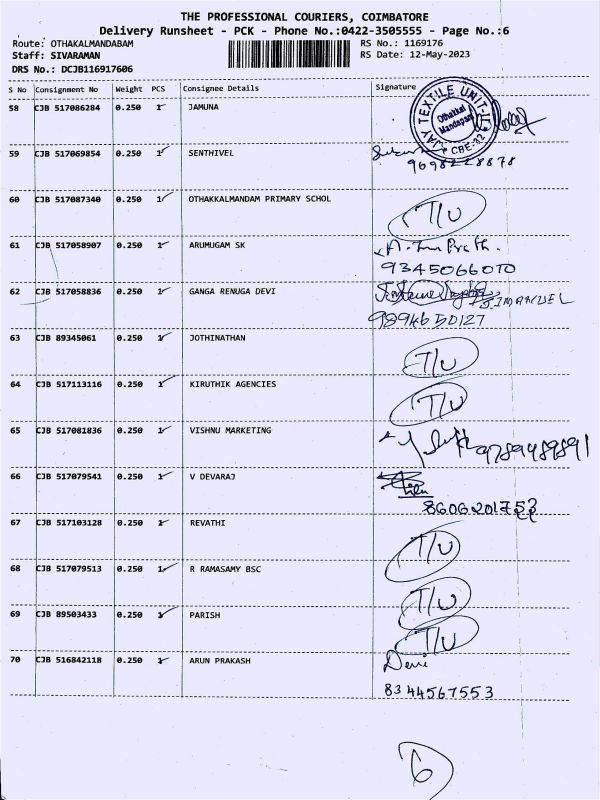 THE PROFESSIONAL COURIERS, COIMBATORE
Delivery Runsheet - PCK - Phone No.:0422-3505555 - Page No.:6
Route: OTHAKALMANDABAM RS No.: 1169176
Staff: SIVARAMAN RS Date: 12-May-2023
DRS No.: DCJB116917606
S No Consignment No Weight PCS Consignee Details Signature
58 CJB 517086284 0.250 1 JAMUNA
JAY TEXTILE UNIT-II
Othakkal
Mandapam
CBE-32
59 CJB 517069854 0.250 1 SENTHIVEL
9698228878
60 CJB 517087340 0.250 1 OTHAKKALMANDAM PRIMARY SCHOL T/U
61 CJB 517058907 0.250 1 ARUMUGAM SK
9345066010
62 CJB 517058836 0.250 1 GANGA RENUGA DEVI
9894650127
63 CJB 89345061 0.250 1 JOTHINATHAN T/U
64 CJB 517113116 0.250 1 KIRUTHIK AGENCIES T/U
65 CJB 517081836 0.250 1 VISHNU MARKETING 9789489891
66 CJB 517079541 0.250 1 V DEVARAJ
67 CJB 517103128 0.250 1 REVATHI T/U
68 CJB 517079513 0.250 1 R RAMASAMY BSC T/U
69 CJB 89503433 0.250 1 PARISH T/U
70 CJB 516842118 0.250 1 ARUN PRAKASH Devi
8344567553
6